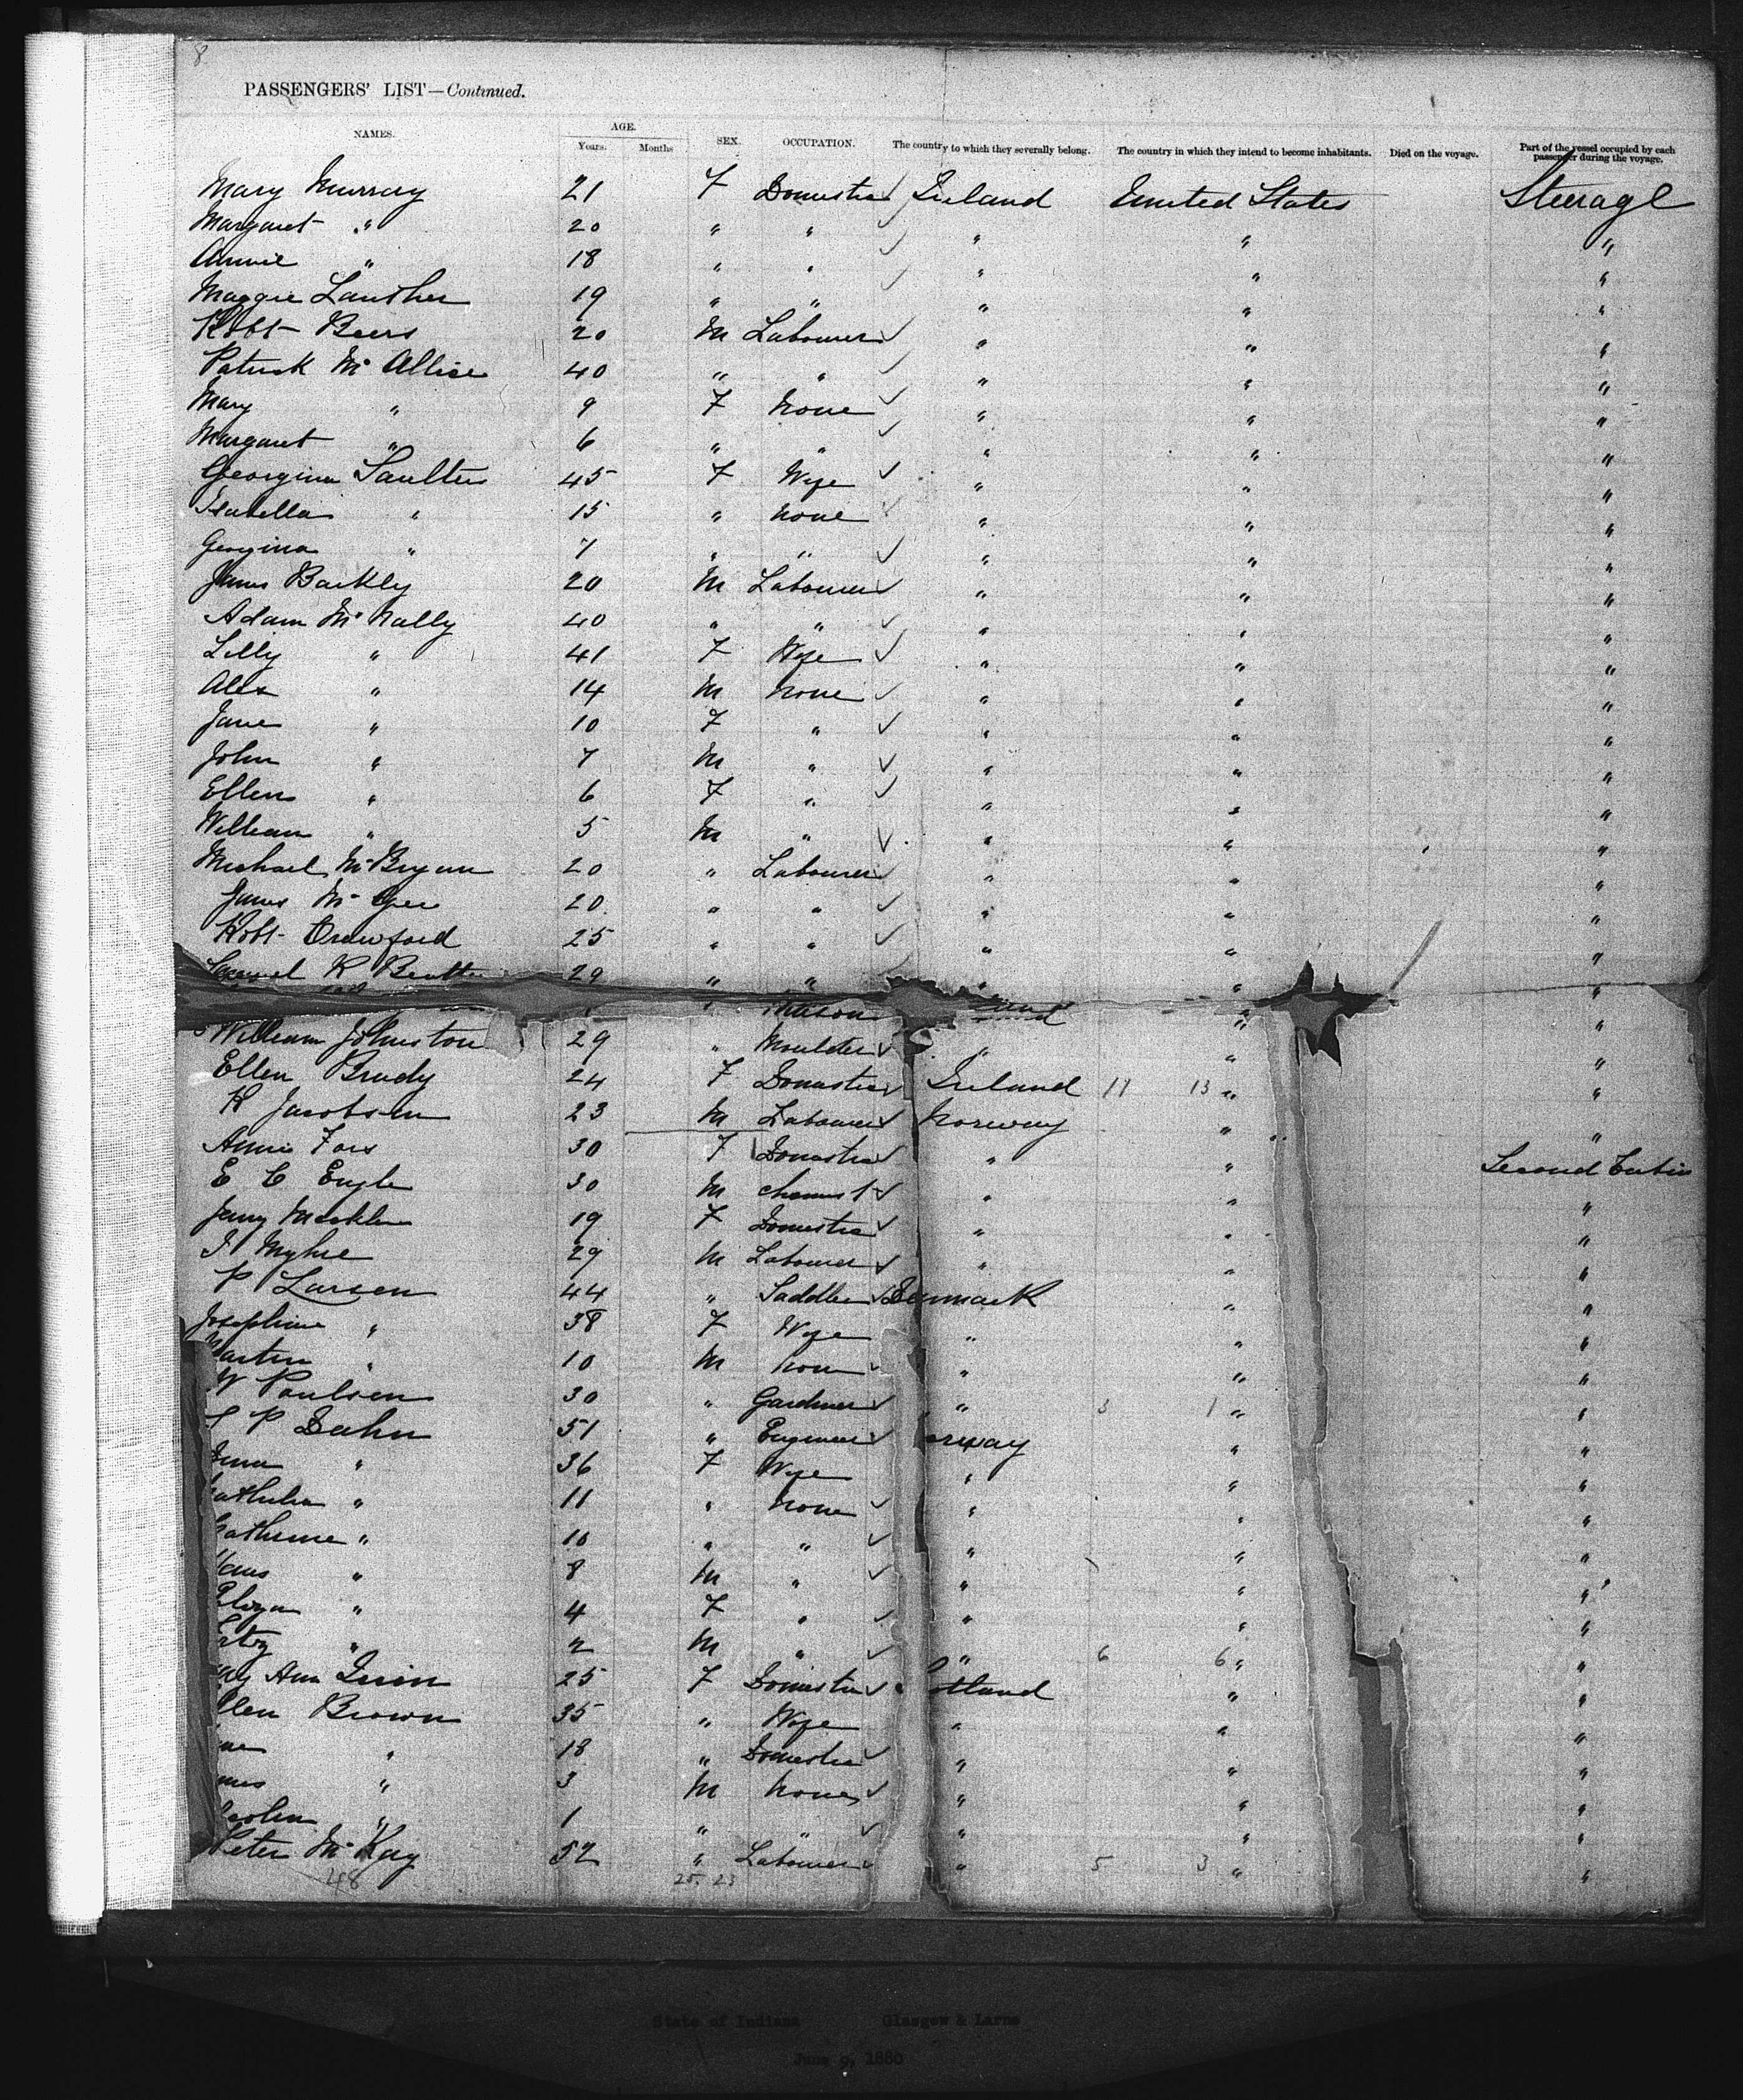 8
PASSENGERS' LIST—Continued.
NAMES. AGE. Years. Months SEX. OCCUPATION. The country to which they severally belong. The country in which they intend to become inhabitants. Died on the voyage. Part of the vessel occupied by each passenger during the voyage.
Mary Murray 21 F Domestic Ireland United States Steerage
Margaret " 20 " " " " "
Annie " 18 " " " " "
Maggie 19 " " " " "
Robt Beers 20 M Labourer " " "
Patrick Mc 40 " " " " "
Mary " 9 F None " " "
Margaret " 6 " " " " "
Georgina Saulters 45 F Wife " " "
Isabella " 15 " None " " "
Georgina " 7 " " " " "
James Barkly 20 M Labourer " " "
Adam McNally 40 " " " " "
Lilly " 41 F Wife " " "
Alex " 14 M None " " "
Jane " 10 F " " " "
John " 7 M " " " "
Ellen " 6 F " " " "
William " 5 M " " " "
Michael 20 " Labourer " " "
James McGee 20 " " " " "
Robt Crawford 25 " " " " "
Samuel R 29 " " " " "
" Mason " "
William Johnston 29 " Moulder " " "
Ellen Brady 24 F Domestic Ireland 11 13 " "
K Jacobsen 23 M Labourer Norway " "
Annie 30 F Domestic " " Second Cabin
E C Engle 30 M Chemist " " "
Jenny 19 F Domestic " " "
29 M Labourer " " "
P Larsen 44 " Saddler Denmark " "
Josephine " 38 F Wife " " "
Martin " 10 M None " " "
W Paulsen 30 " Gardner " 3 1 " "
P Dahn 51 " Engineer orway " "
" 36 F Wife " " "
" 11 " None " " "
atherine " 10 " " " " "
Hans " 8 M " " " "
" 4 F " " " "
" 2 M " " 6 6 " "
Ann 25 F Domestic otland " "
llen Brown 35 " Wife " " "
" 18 " Domestic " " "
mes " 3 M None " " "
" 1 " " " " "
Peter McKay 52 " Labourer " 5 3 " "
48 25. 23
State of Indiana Glasgow & Larne
June 9, 1880